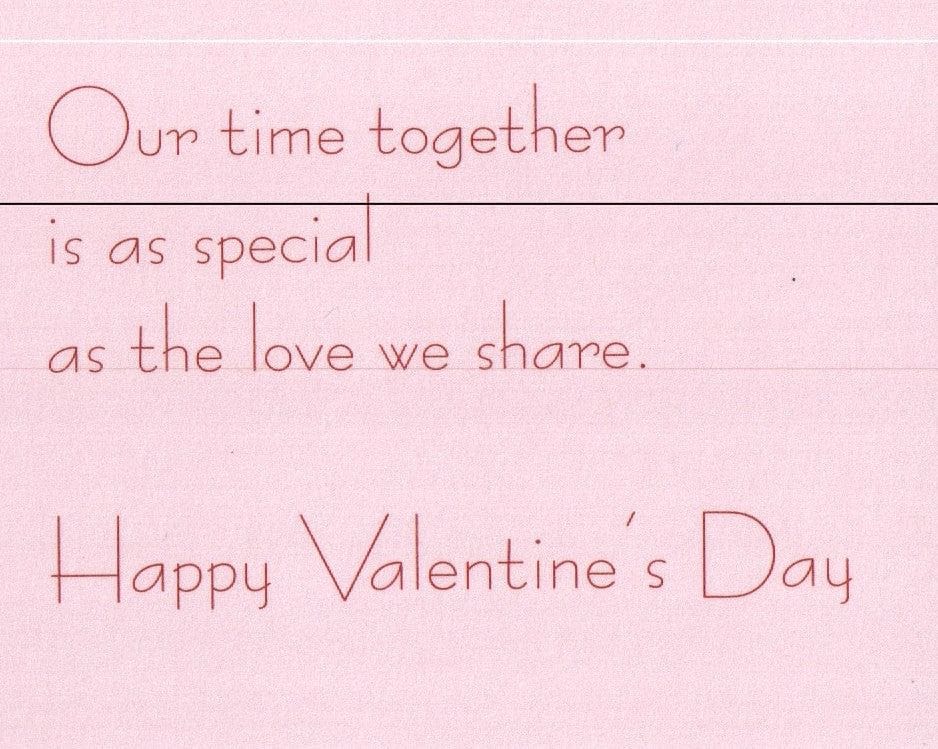 Our time together
is as special
as the love we share.
Happy Valentine's Day